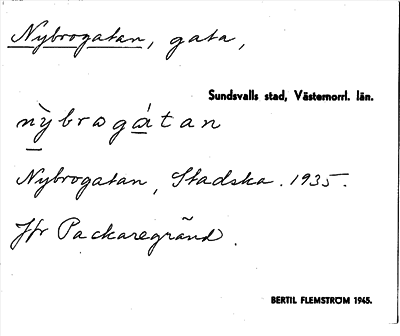 Nybrogatan, gata,
Sundsvalls stad, Västernorrl. län.
nỳbrogátan
Nybrogatan, Stadska. 1935.
Jfr Packaregränd.
BERTIL FLEMSTRÖM 1945.